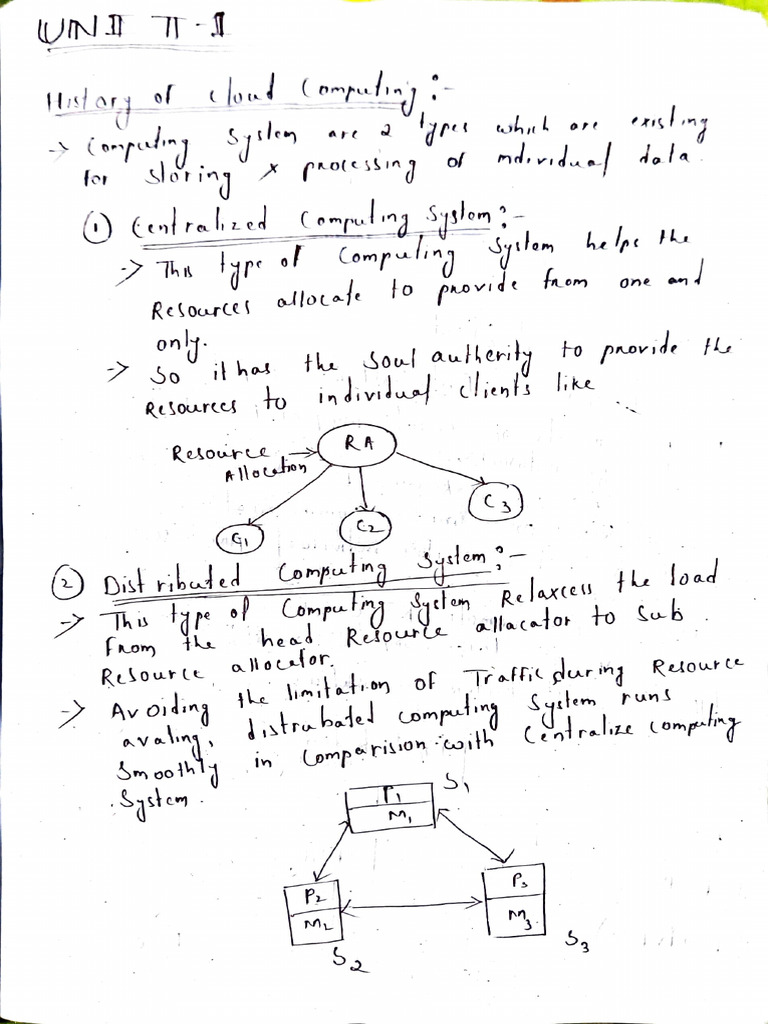 UNIT-1
History of cloud Computing:-
-> Computing System are 2 types which are existing
for storing & processing of individual data.
① Centralized Computing System:-
-> This type of Computing System helps the
Resources allocate to provide from one and
only.
-> So it has the soul authority to provide the
Resources to individual clients like
Resource -> RA
Allocation
C1 C2 C3
② Distributed Computing System:-
-> This type of Computing System Relaxcess the load
From the head Resource allacator to Sub
Resource allocator.
-> Avoiding the limitation of Traffic during Resource
avaling, distrubated computing System runs
Smoothly in Comparision with Centralize computing
System.
P1 S1
M1
P2 P3
M2 M3
S2 S3